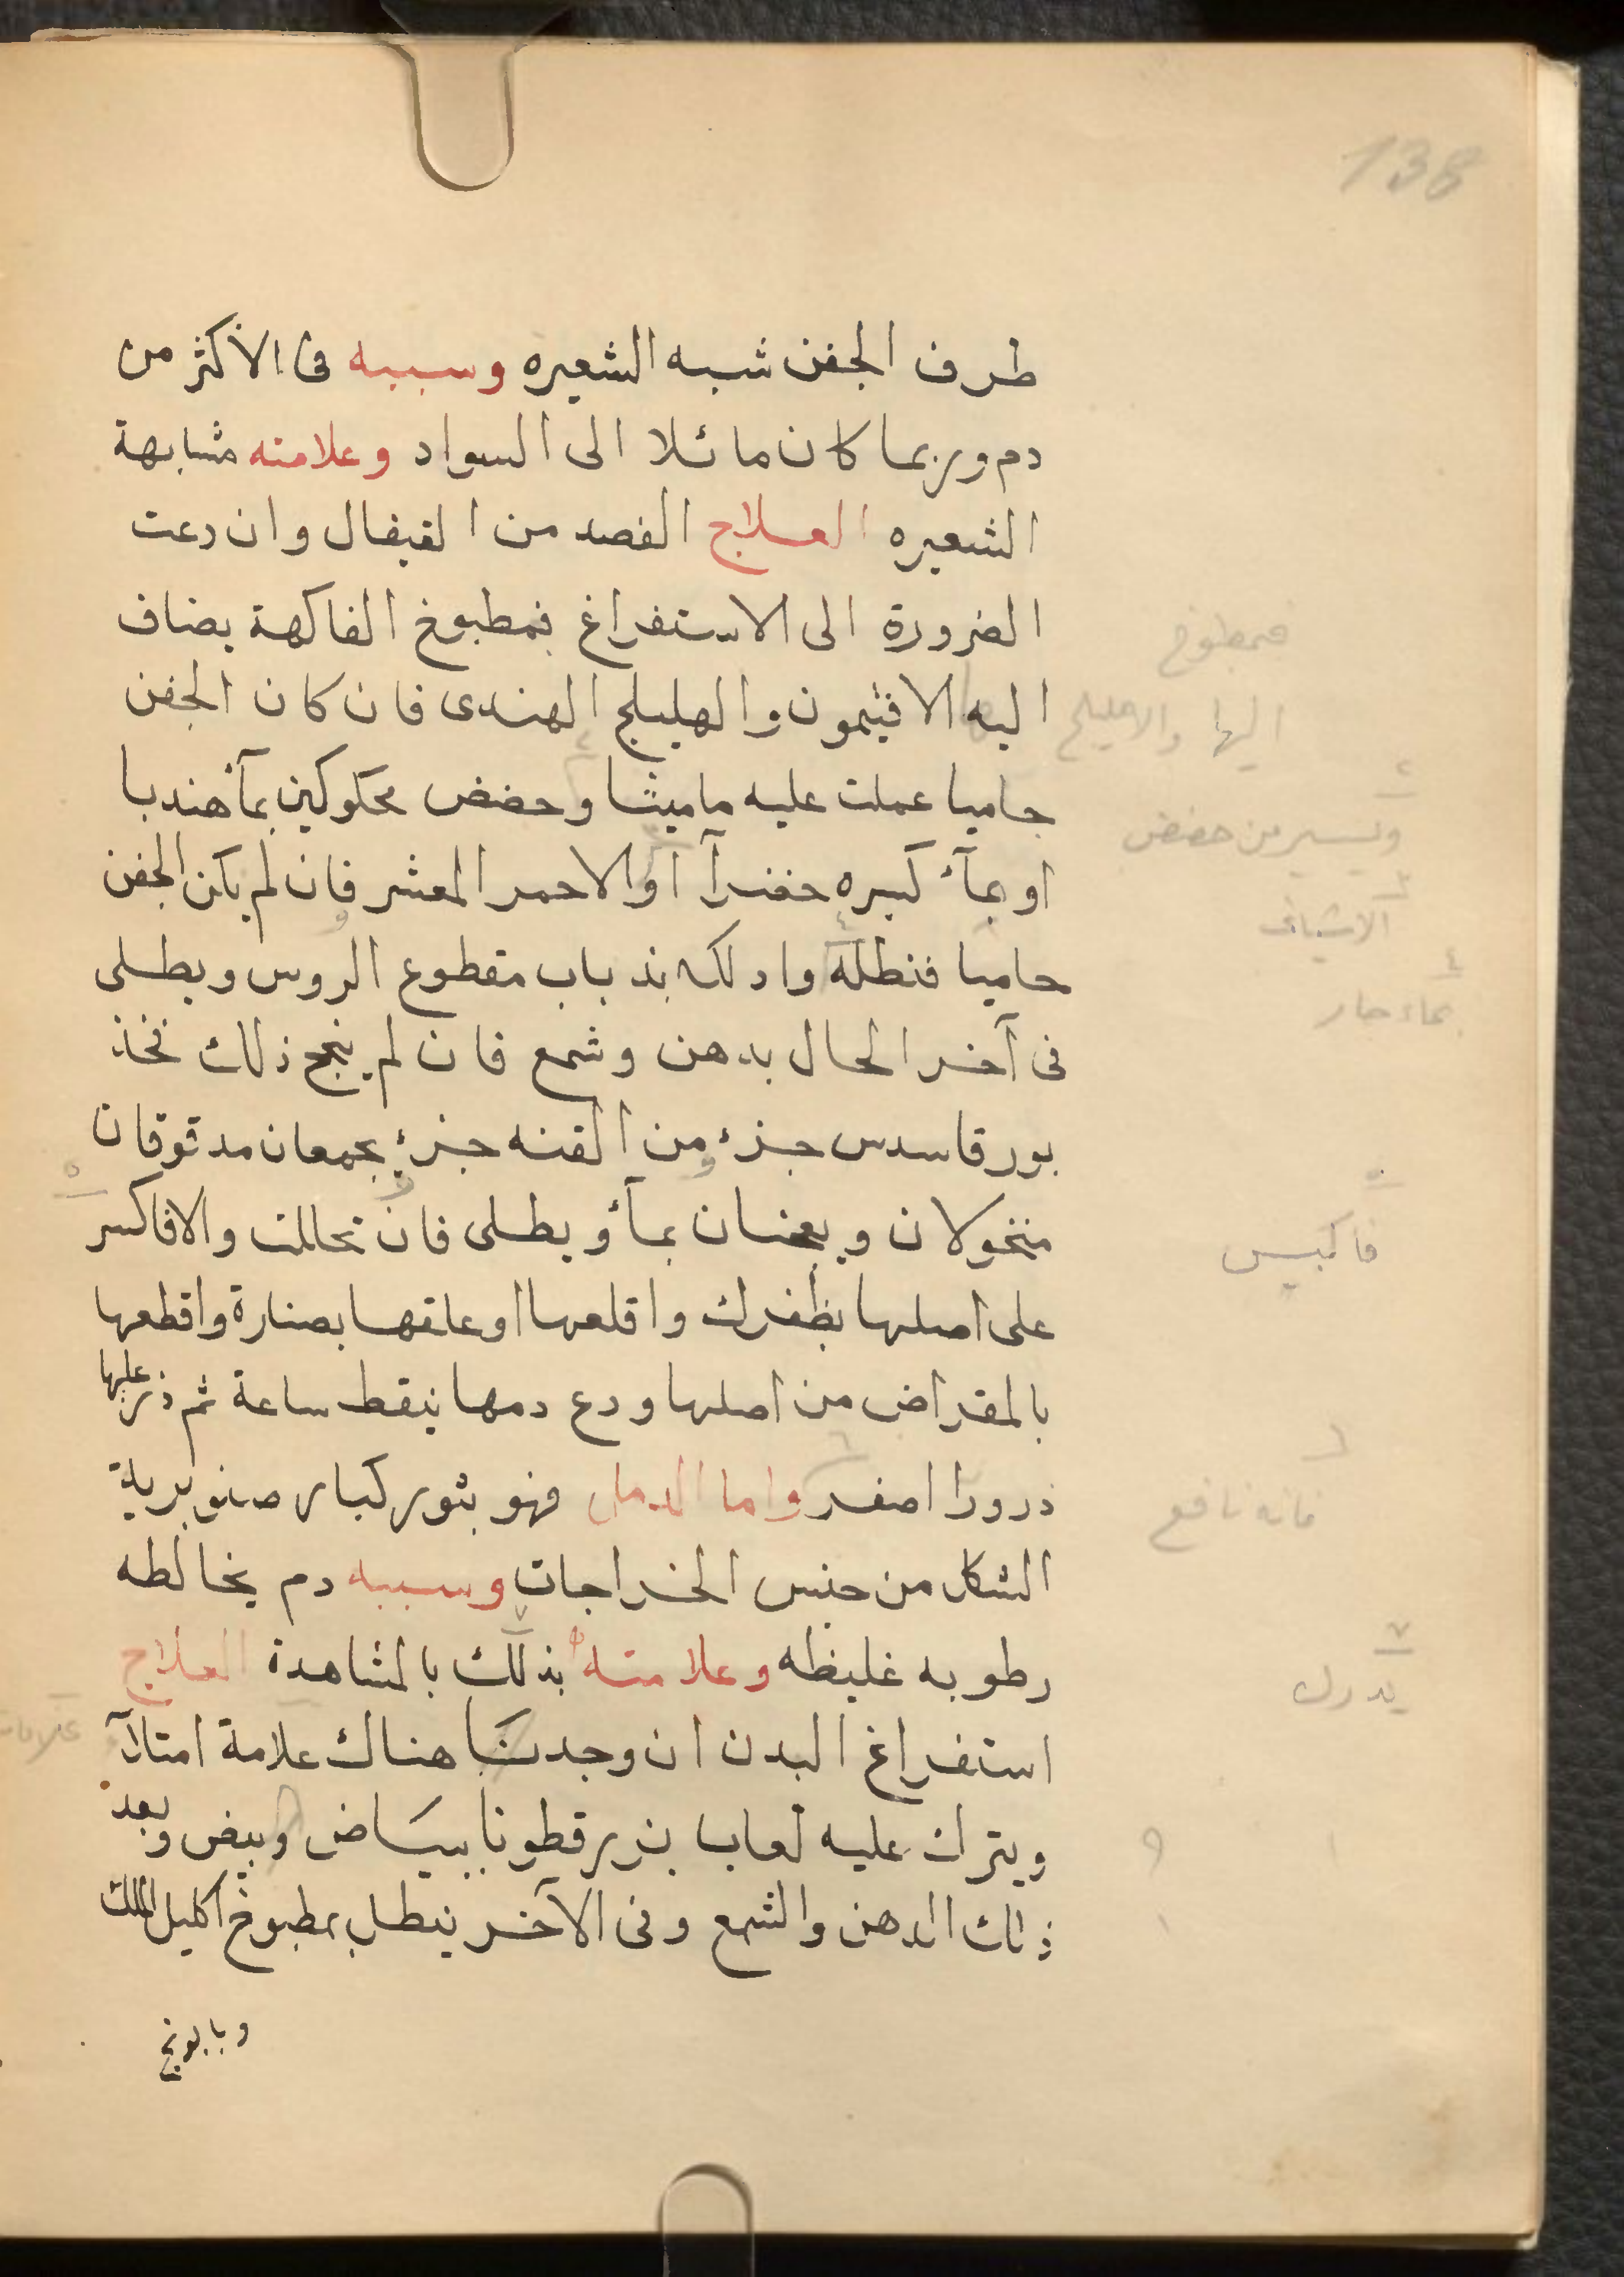 138
طرف الجفن شبه الشعيره وسببه فى الأكثر من
دم وربما كان مائلا الى السواد وعلامته مشابهة
الشعيره العلاج الفصد من القيفال وان دعت
الضرورة الى الاستفراغ فمطبوخ الفاكهة يضاف
فمطبوخ
اليه الافتيمون والهليلج الهندى فان كان الجفن
اليها والاهليلج
حاميا عملت عليه ماميثا وحضض محكوكين بمآ هندبا
٢
ويسير من حضض
او بمآء كسبره خضرآ او الاحمر المعشر فان لم يكن الجفن
٣
الاشياف
حاميا فنطله وادلكه بذباب مقطوع الروس ويطلى
٤
بماء حار
فى آخر الحال بدهن وشمع فان لم ينجح ذلك فخذ
بورقا سدس جزء ومن القنه جزء يجمعان مدقوقان
منخولان ويعجنان بمآء ويطلى فان تحاللت والا فاكسر
٥
فاكبيس
على اصلها بظفرك واقلعها او علقها بصنارة واقطعها
بالمقراض من اصلها ودع دمها ينقط ساعة ثم ذر عليها
ذرورا اصفر واما الدمل فهو بثور كبار صنوبرية
٦
فانه نافع
الشكل من جنس الخراجات وسببه دم يخالطه
رطوبه غليظه وعلامته بذلك بالمشاهدة العلاج
٧
يدرك
استفراغ البدن ان وجدت هناك علامة امتلآ
علامات
ويترك عليه لعاب بزر قطونا ببياض وبيض وبعد
ذلك الدهن والشمع وفى الآخر ينطل بمطبوخ اكليل الملك
وبابونج